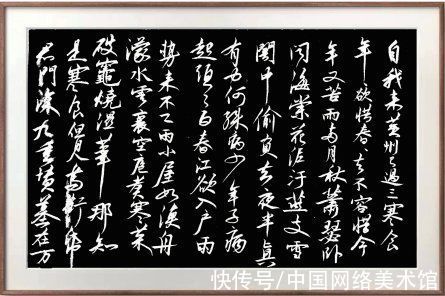 自我来黄州已過三寒食
年々欲惜春々去不容惜今
年又苦雨兩月秋蕭瑟卧
闻海棠花泥汙燕支雪
闇中偷負去夜半真
有力何殊病少年子病
起頭已白春江欲入户雨
势来不已雨小屋如渔舟
濛水雲裏空庖煮寒菜
破竈燒湿葦那知
是寒食但見烏銜紙
君門深九重墳墓在万
快传号/中国网络美术馆